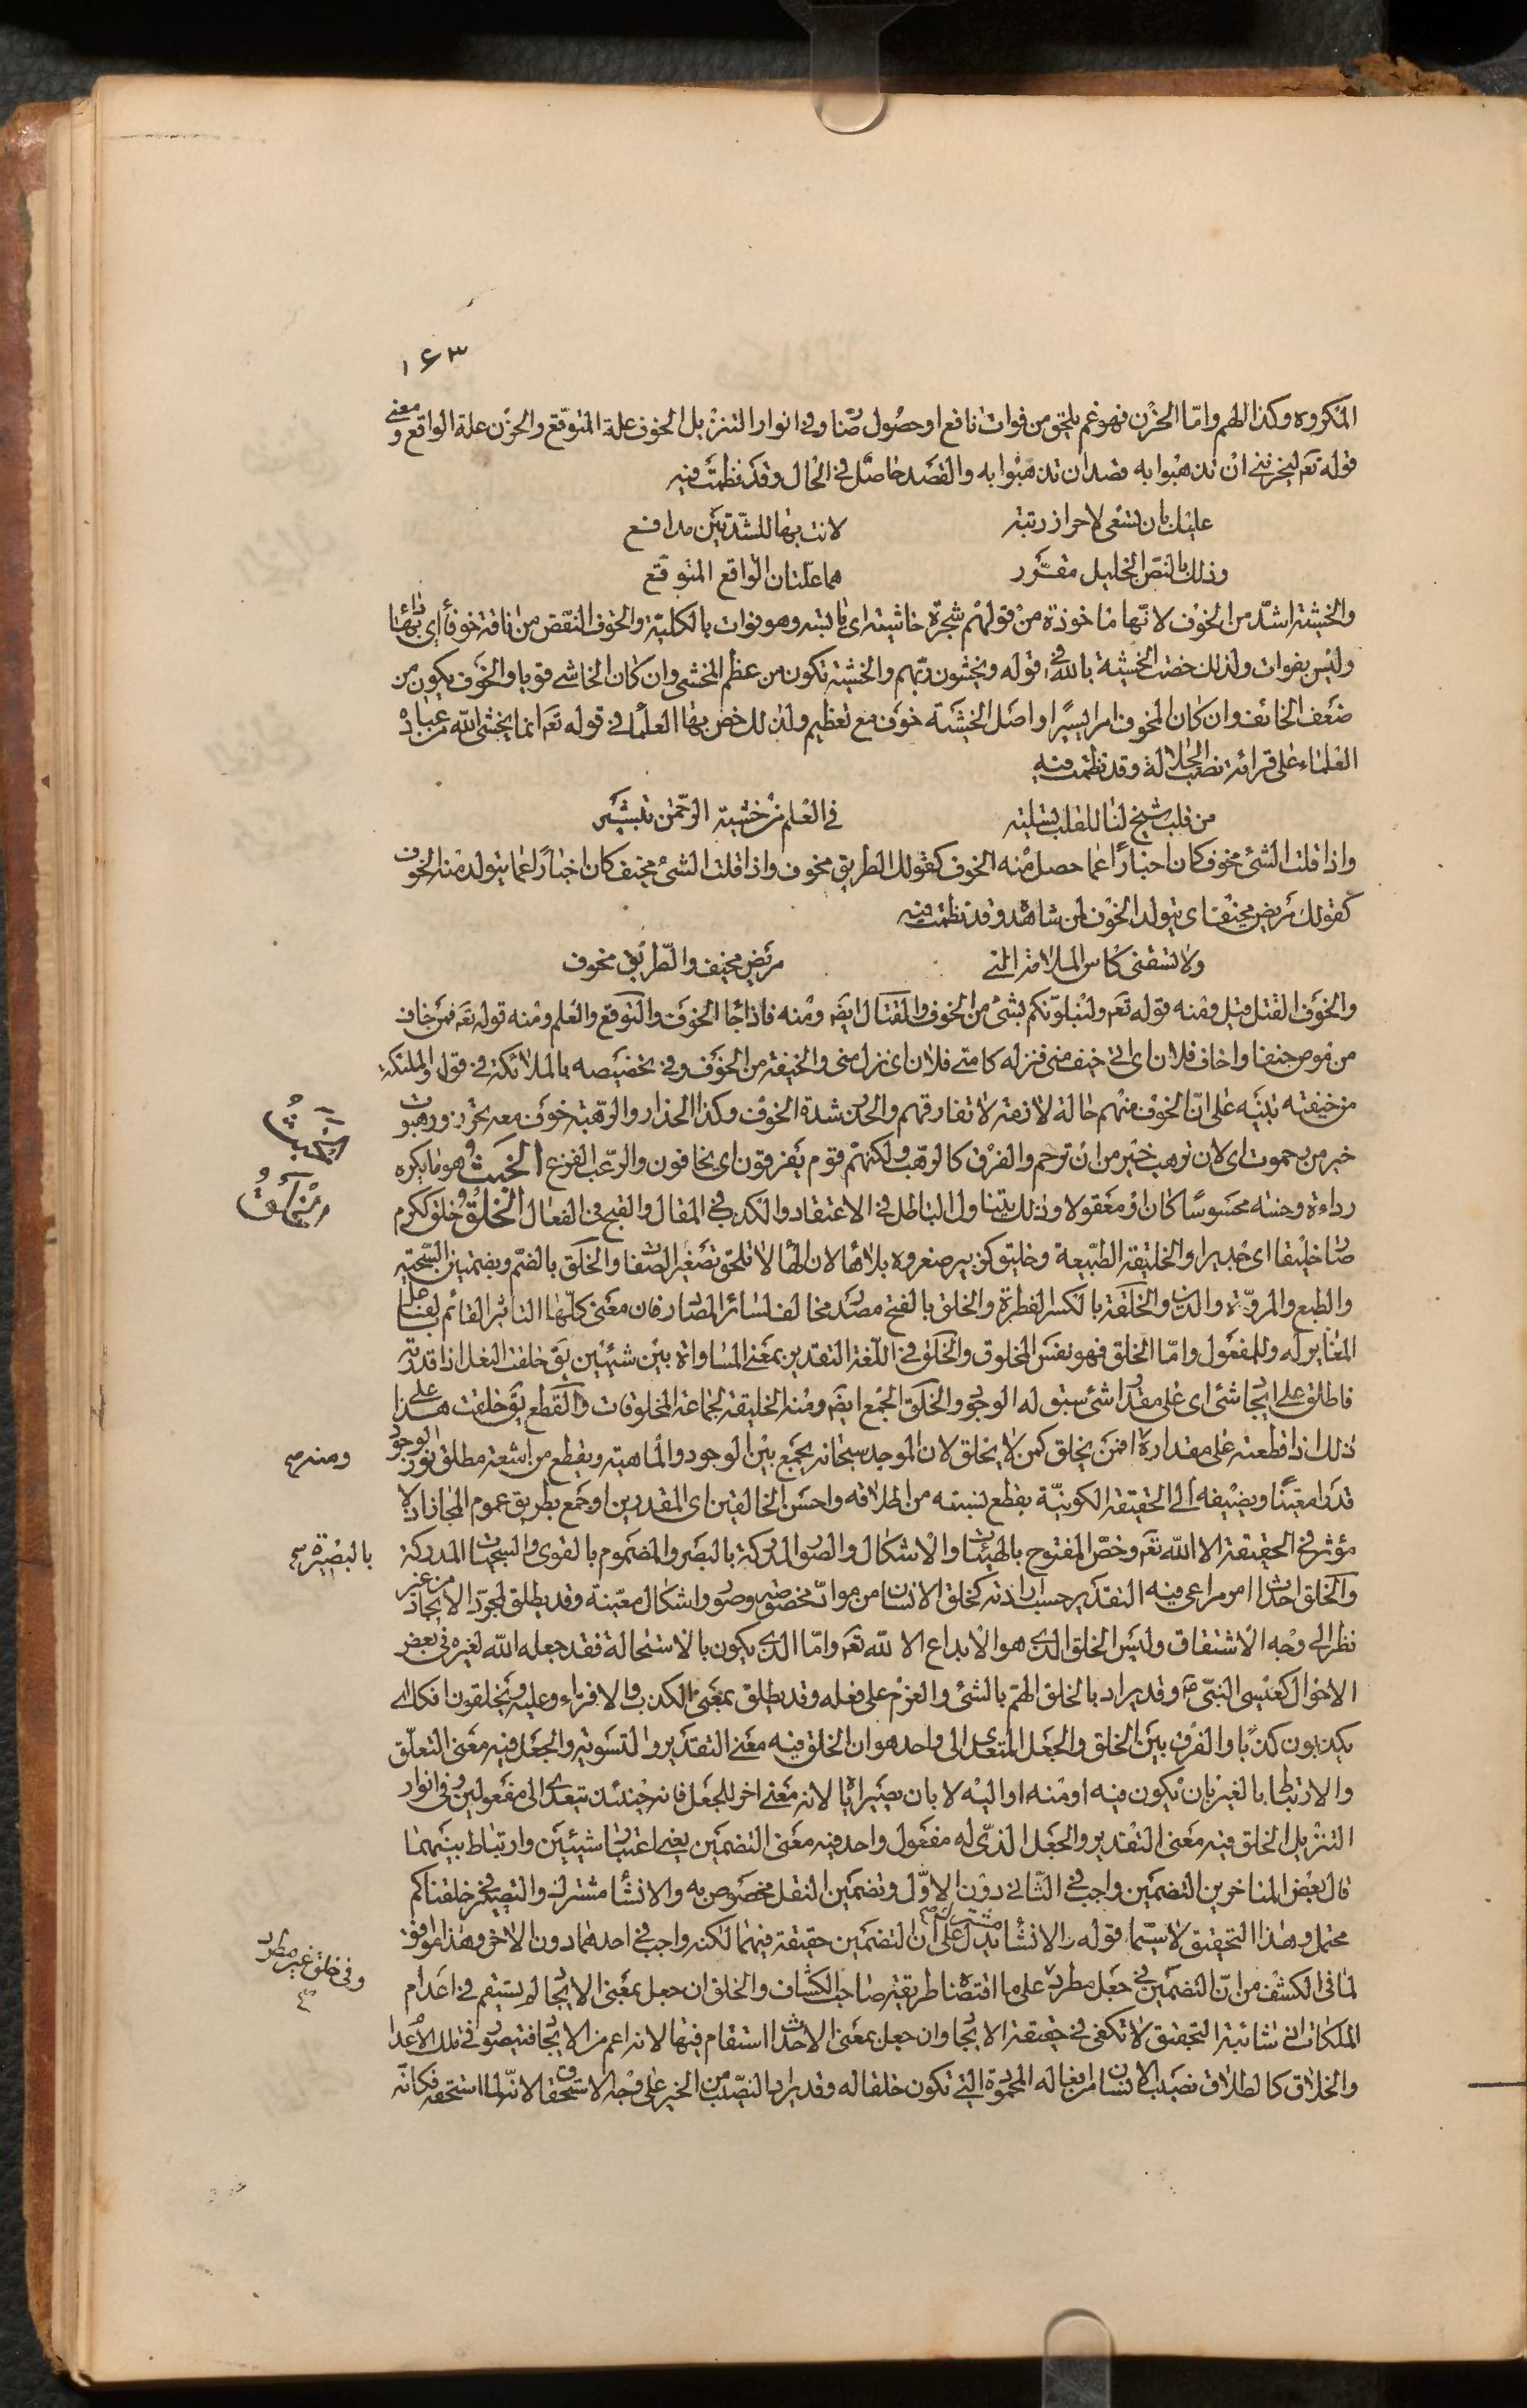 ۱۶۳
المكروه وكذا الهم وامّا الحزن فهو غم يلحق من فوات نافع او حصول ضار وفى انوار التنزيل الخوف علة المتوقع والحزن علة الواقع ومعنى
قوله تعه ليحزننى ان تذهبوا به قصدان تذهبوا به والقصد حاصل فى الحال وقد نظمت فيه
عليك بان تسعى لاحراز رتبة لانت بها للشدتين مدافع
وذلك بالنص الجليل مقرّر هما علتان الواقع المتوقع
والخشية اشدّ من الخوف لانّها ماخوذة من قولهم شجرة خاشية اى يابسة وهو فوات بالكلية والخوف النقص من ناقة خوفاء اى بها داء
وليس بفوات ولذلك خصت الخشية بالله فى قوله ويخشون ربّهم والخشية تكون من عظم المخشى وان كان الخاشى قويا والخوف يكون من
ضعف الخائف وان كان المخوف امرا يسيرا واصل الخشية خوف مع تعظيم ولذلك خص بها العلماء فى قوله تعه انما يخشى الله من عباده
العلماء على قرائة نصب الجلالة وقد نظمت فيه
من قلب شيخ لنا للقلب تسلية فى العلم من خشية الرحمن تبشير
واذا قلت الشئ مخوف كان اخبارًا عما حصل منه الخوف كقولك الطريق مخوف واذا قلت الشئ مخيف كان اخبارًا عما يتولد منه الخوف
كقولك مريض مخيف اى يتولد الخوف لمن شاهده وقد نظمت فيه
ولا تسقنى كاس الملامة اننى مريض مخيف والطّريق مخوف
والخوف القتل قيل ومنه قوله تعه ولنبلونّكم بشئ من الخوف والقتال ايضه ومنه فاذا جاء الخوف والتوقع والعلم ومنه قوله تعه فمن خاف
من موص جنفا واخاف فلان اى اتى خيف منى فنزله كامتى فلان اى نزل منى والخيفة من الخوف وفى تخصيصه بالملائكة فى قوله والملئكة
من خيفته تنبيه على انّ الخوف منهم حالة لازمة لا تفارقهم والحذر شدة الخوف وكذا الحذار والرهبة خوف معه تحرّز ورهبوت
خير من رحموت اى لان ترهب خير من ان ترحم والفرق كالرهب ولكنّهم قوم يفرقون اى يخافون والرّعب الفزع الخبث وهو ما يكره
رداءة وخسة محسوسًا كان او معقولا وذلك يتناول الباطل فى الاعتقاد والكذب فى المقال والقبح فى الفعال الخلق وخلق ككرم
صار خليقا اى جديرا والخليقة الطبيعة وخليق كزبير صغروه بلا هاء لان الهاء لا تلحق تصغير الصفات والخلق بالضم وبضمتين السّجية
والطبع والمروّة والدين والخلقة بالكسر الفطرة والخلق بالفتح مصدر مخالف لسائر المصادر فان معنى كلّها التاثير القائم بفاعل
المغاير له وللمفعول وامّا الخلق فهو نفس المخلوق والخلق فى اللغة التقدير بمعنى المساواة بين شيئين يق خلقت النعل اذا قدرته
فاطلق على ايجاد شئ اى على مقدار شئ سبق له الوجود والخلق الجمع ايضه ومنه الخليقة لجماعة المخلوقات والقطع يق خلقت هذا على
ذلك اذا قطعته على مقداره افمن يخلق كمن لا يخلق لان الموجد سبحانه يجمع بين الوجود والماهية ويقطع من اشعة مطلق نور الوجود
قدرا معيّنا ويضيفه الى الحقيقة الكونيّة بقطع نسبته من اطلاقه واحسن الخالقين اى المقدرين او جمع بطريق عموم المجاز اذ لا
مؤثر فى الحقيقة الا الله تعه وخصّ المفتوح بالهيئات والاشكال والصور المدركة بالبصر والمضموم بالقوى والسجيات المدركة
والخلق احداث امر مراعى فيه التقدير حسب ارادته كخلق الانسان من مواد مخصوصة وصور واشكال معيّنة وقد يطلق لمجرّد الايجاد من غير
نظر الى وجه الاشتقاق وليس الخلق الذى هو الابداع الا لله تعه وامّا الذى يكون بالاستحالة فقد جعله الله لغيره فى بعض
الاحوال كعيسى النبّى ع وقد يراد بالخلق الهمّ بالشئ والعزم على فعله وقد يطلق بمعنى الكذب والافتراء وعليه وتخلقون افكا اى
يكذبون كذبًا والفرق بين الخلق والجعل المتعدى الى واحد هو ان الخلق فيه معنى التقدير والتسوية والجعل فيه معنى التعلق
والارتباط بالغير بان يكون فيه او منه او اليه لا بان يصير اياه لانه معنى اخر للجعل فانه حينئذ يتعدى الى مفعولين وفى انوار
التنزيل الخلق فيه معنى التقدير والجعل الذّى له مفعول واحد فيه معنى التضمين يعنى اعتبار شيئين وارتباط بينهما
قال بعض المتاخرين التضمين واجب فى الثّانى دون الاوّل وتضمين النقل مخصوص به والانشاء مشترك والتصيير فى خلقناكم
محتمل وهذا التحقيق لاسيّما قوله والانشاء مشترك يدل على ان التضمين حقيقة فيهما لكنه واجب فى احدهما دون الاخر وهذا موافق
لما فى الكشف من انّ التضمين فى جعل مطرد على ما اقتضاه طريقة صاحب الكشّاف والخلق ان جعل بمعنى الايجاد لم يستقم فى اعدام
الملكات اذ شائبة التحقيق لا تكفى فى حقيقة الايجاد وان جعل بمعنى الاحداث استقام فيها لانه اعم من الايجاد فيتصور فى تلك الاعدام
والخلاق كالطلاق نصيب الانسان من افعاله المحمودة التى تكون خلقا له وقد يراد النصيب من الخير على وجه الاستحقاق لانّه لما استحقه فكانّه
الخبث
الخلق
ومنه صح
بالبصيرة صح
وفى خلق غير مطرد صح